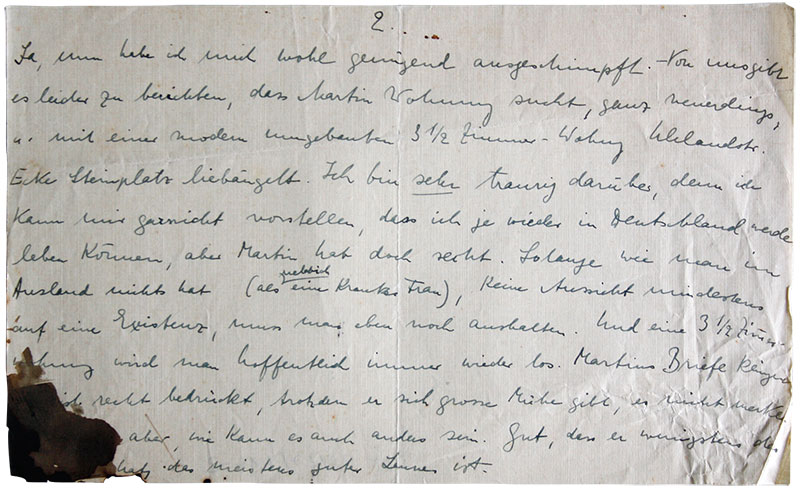 2...
Ja, nun habe ich mich wohl genügend ausgeschimpft. - Von uns gibt
es leider zu berichten, dass Martin Wohnung sucht, ganz neuerdings,
u. mit einer modern umgebauten 3 1/2 Zimmer-Wohng Uhlandstr.
Ecke Steinplatz liebäugelt. Ich bin sehr traurig darüber, denn ich
kann mir garnicht vorstellen, dass ich je wieder in Deutschland werde
leben können, aber Martin hat doch recht. Solange wie man im
Ausland nichts hat (als nebbich eine kranke Frau), keine Aussicht mindestens
auf eine Existenz, muss man eben noch aushalten. Und eine 3 1/2 Zimmer-
wohnung wird man hoffentlich immer wieder los. Martins Briefe klingen
recht bedrückt, trotzdem er sich grosse Mühe gibt, es nicht merken
aber, wie kann es auch anders sein. Gut, dass er wenigstens das
hat, das meistens guter Laune ist.